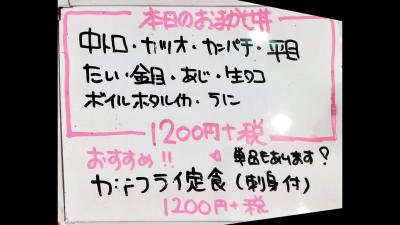 本日のおまかせ丼
中トロ・カツオ・カンパチ・平目
たい・金目・あじ・生タコ
ボイルホタルイカ・うに
1200円+税
おすすめ!! 単品もあります?
カキフライ定食(刺身付)
1200円+税